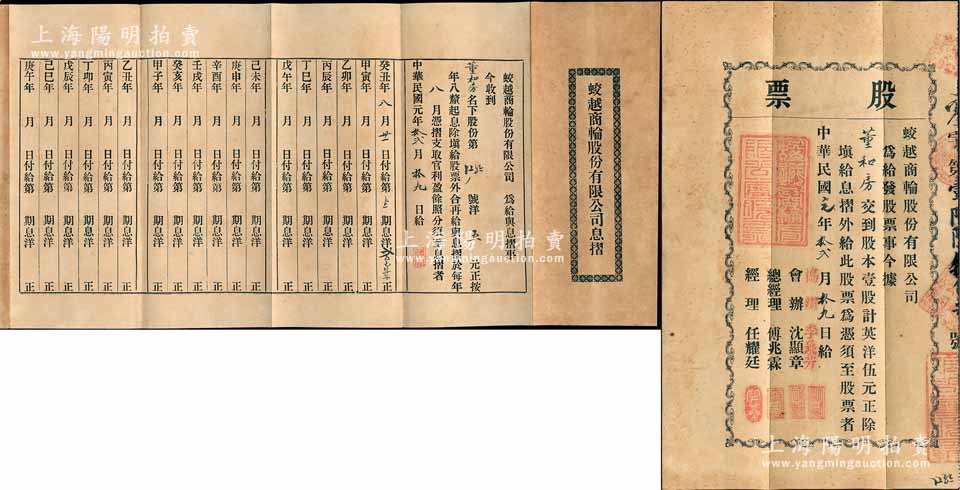 股票
蛟越商輪股份有限公司
為給發股票事今據
董和房交到股本壹股計英洋伍元正除
填給息摺外給此股票為憑須至股票者
中華民國元年拾弍月拾九日給
會辦 沈顯章
總經理 傅兆霖
經理 任耀廷
號
蛟越商輪股份有限公司息摺
蛟越商輪股份有限公司 為給與息摺事
今收到
董和房名下股份第 號洋 元正按
年八釐起息除填給股票外合再給與息摺於每年
八月憑摺支取官利盈餘照分須至息摺者
中華民國元年拾弍月拾九日給
癸丑年八月廿 日付給第 期息洋 正
甲寅年 月 日付給第 期息洋 正
乙卯年 月 日付給第 期息洋 正
丙辰年 月 日付給第 期息洋 正
丁巳年 月 日付給第 期息洋 正
戊午年 月 日付給第 期息洋 正
己未年 月 日付給第 期息洋 正
庚申年 月 日付給第 期息洋 正
辛酉年 月 日付給第 期息洋 正
壬戌年 月 日付給第 期息洋 正
癸亥年 月 日付給第 期息洋 正
甲子年 月 日付給第 期息洋 正
乙丑年 月 日付給第 期息洋 正
丙寅年 月 日付給第 期息洋 正
丁卯年 月 日付給第 期息洋 正
戊辰年 月 日付給第 期息洋 正
己巳年 月 日付給第 期息洋 正
庚午年 月 日付給第 期息洋 正
上海陽明拍賣
www.yangmingauction.com
上海陽明拍賣
www.yangmingauction.com
上海陽明拍賣
www.yangmingauction.com